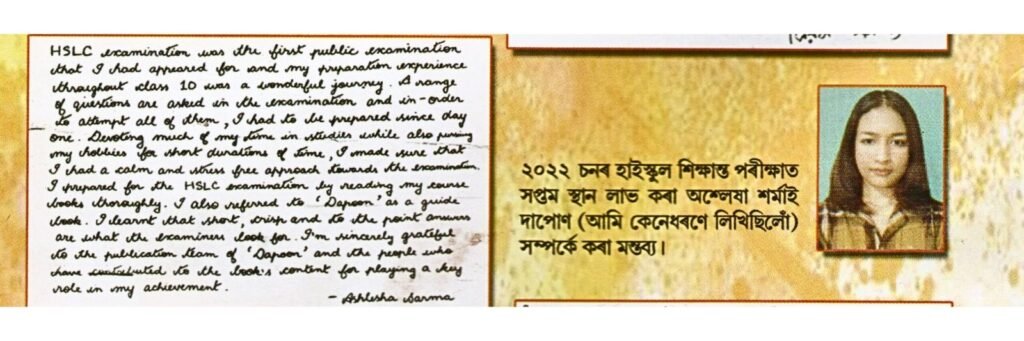 HSLC examination was the first public examination
that I had appeared for and my preparation experience
throughout class 10 was a wonderful journey. A range
of questions are asked in the examination and in-order
to attempt all of them, I had to be prepared since day
one. Devoting much of my time in studies while also pursuing
my hobbies for short durations of time, I made sure that
I had a calm and stress free approach towards the examination.
I prepared for the HSLC examination by reading my course
books thoroughly. I also referred to 'Dapoon' as a guide
book. I learnt that short, crisp and to the point answers
are what the examiners look for. I'm sincerely grateful
to the publication team of 'Dapoon' and the people who
have contributed to the book's content for playing a key
role in my achievement.
- Ashlesha Sarma
২০২২ চনৰ হাইস্কুল শিক্ষান্ত পৰীক্ষাত
সপ্তম স্থান লাভ কৰা অশ্লেষা শৰ্মাই
দাপোণ (আমি কেনেধৰণে লিখিছিলোঁ)
সম্পৰ্কে কৰা মন্তব্য।